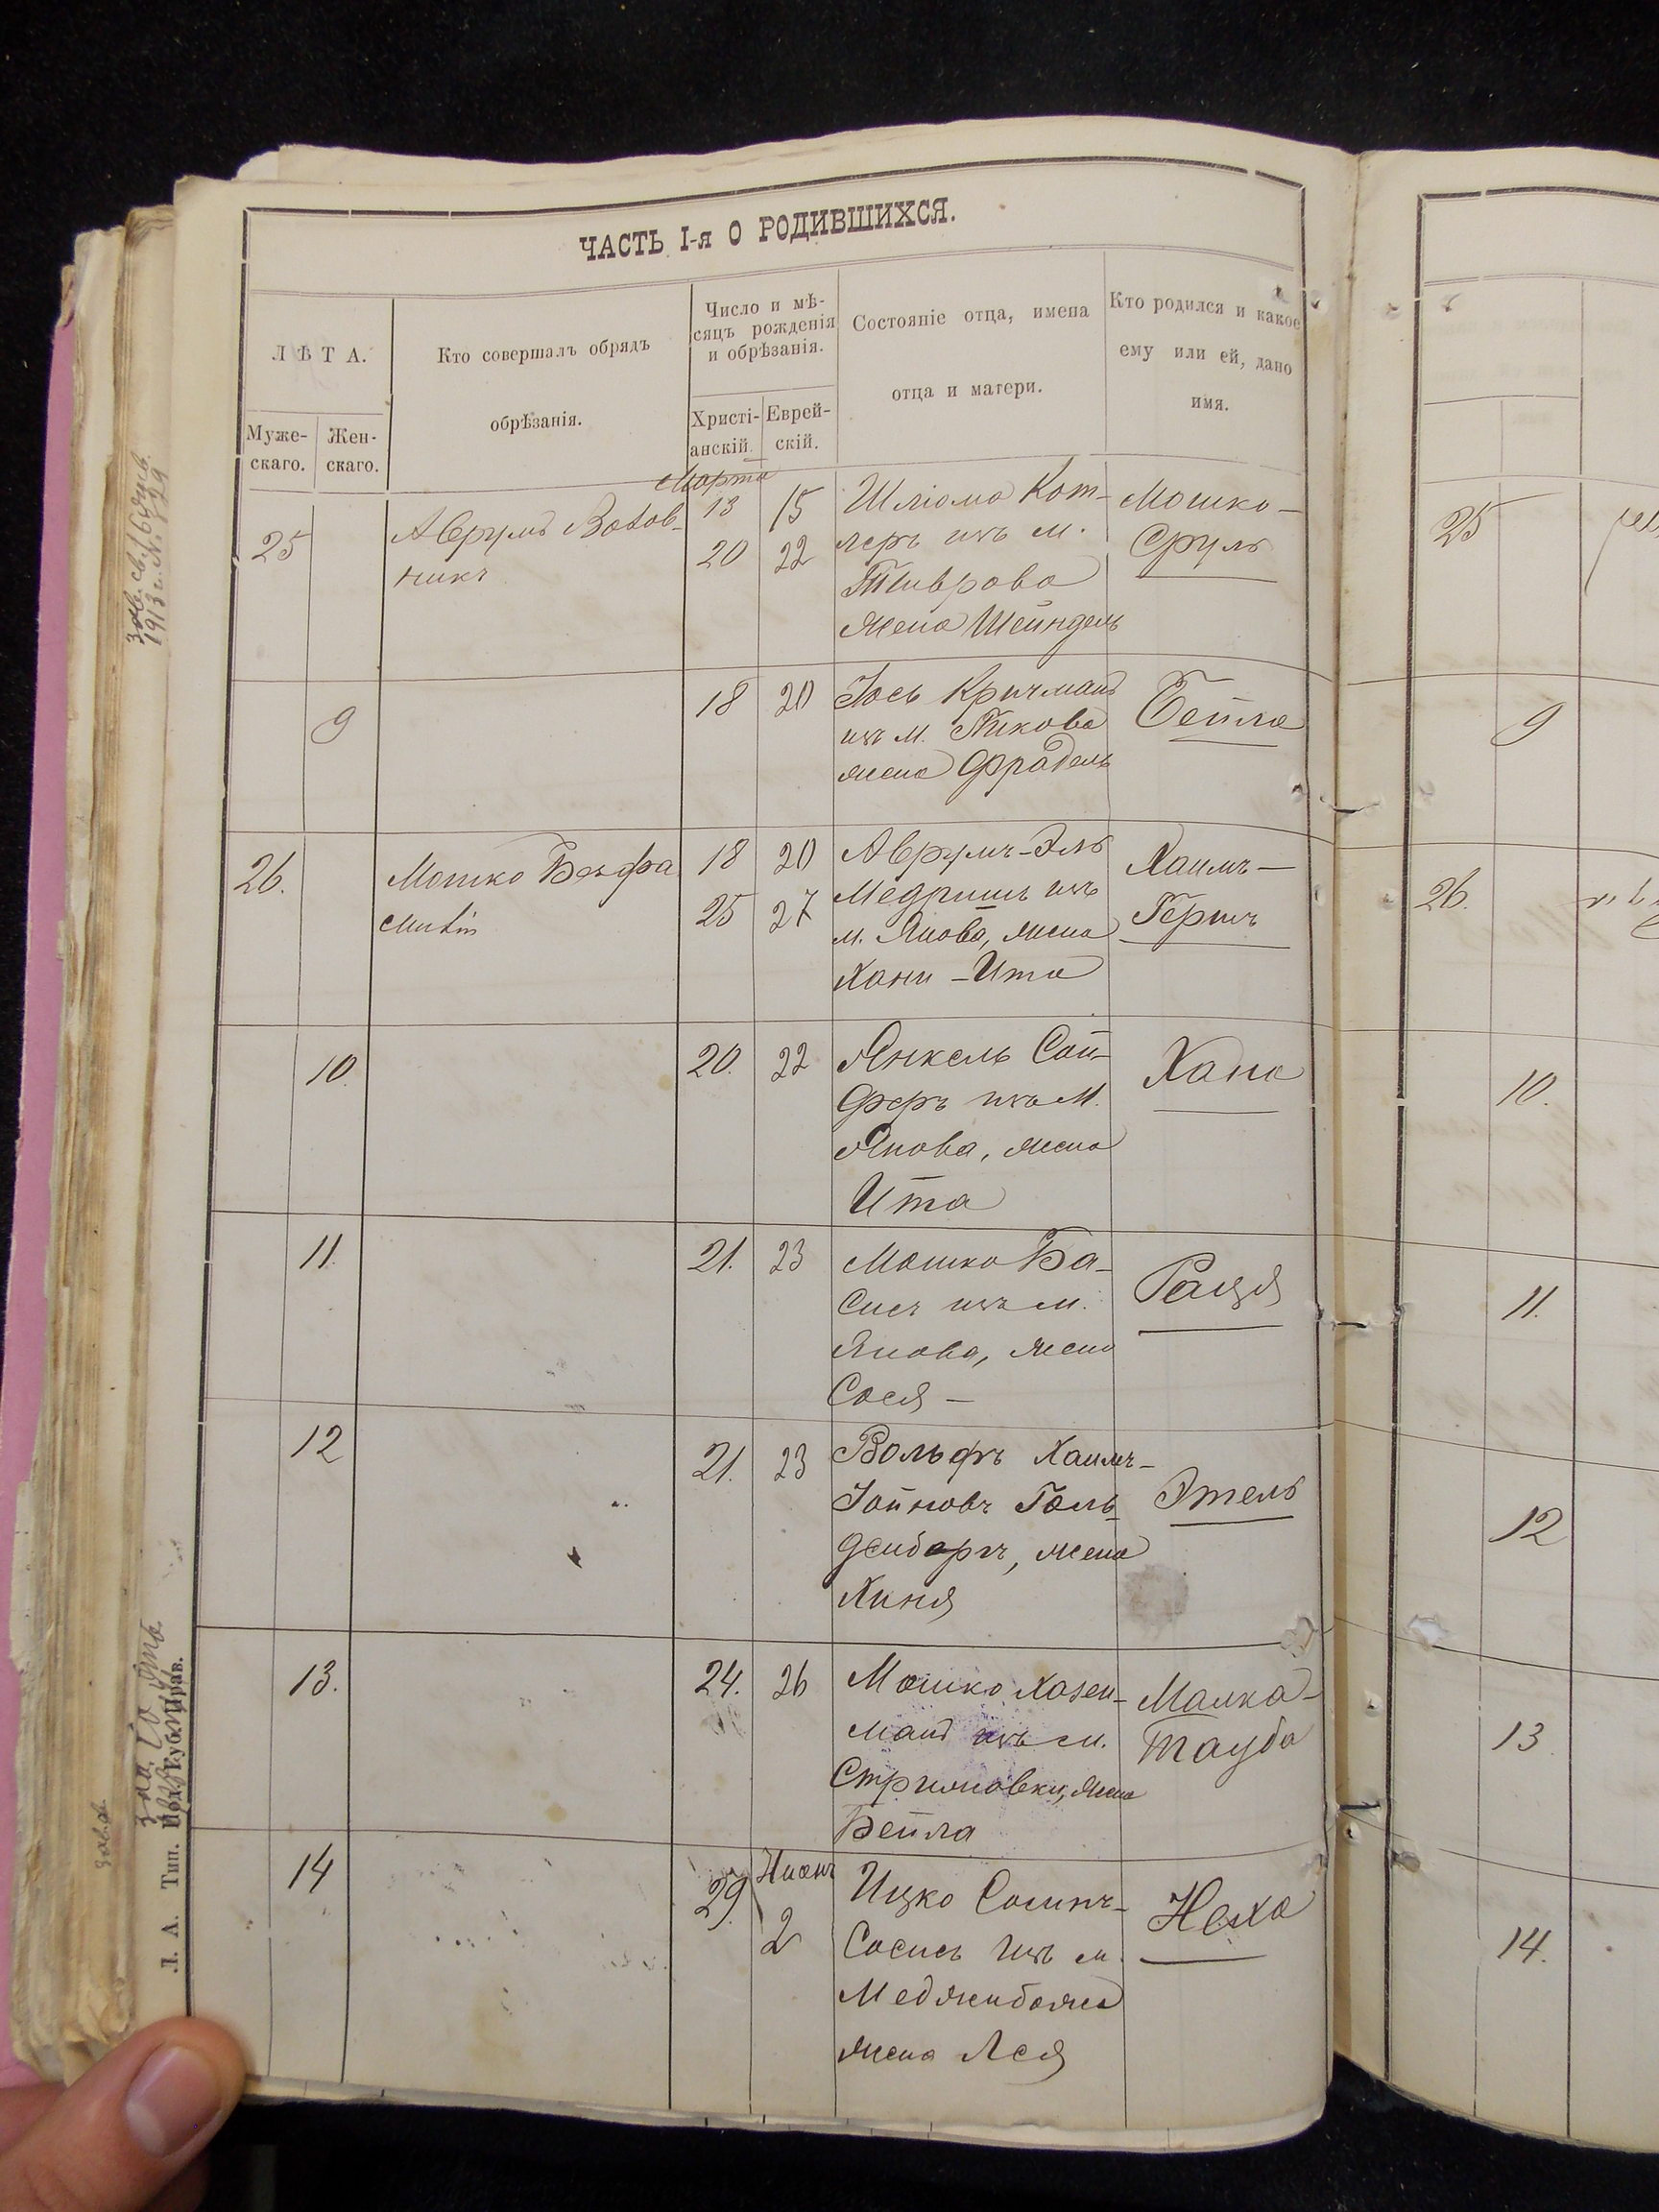 ЧАСТЬ I-я О РОДИВШИХСЯ.
ЛѢТА.
Муже-
скаго.
Жен-
скаго.
Кто совершалъ обрядъ
обрѣзанія.
Число и мѣ-
сяцъ рожденія
и обрѣзанія.
Христі-
анскій.
Еврей-
скій.
Состояніе отца, имена
отца и матери.
Кто родился и какое
ему или ей, дано
имя.
Марта
25
Аврумъ
никъ
13 15
20 22
Шліома Кот-
ляръ изъ м.
Тиврова
жена Шейндель
Мошко-
Сруль
9
18 20
Іось Кричманъ
изъ м. Пикова
жена Фрадель
Бейла
26.
Мошко
18 20
25 27
Аврумъ-Эль
Медришъ изъ
м. Янова, жена
Хани-Ита
Хаимъ-
Гершъ
10.
20. 22
Янкель Сой-
феръ изъ м.
Янова, жена
Ита
Хана
11.
21. 23
Мошко Ба-
сисъ изъ м.
Янова, жена
Сося-
Раця
12
21. 23
Вольфъ Хаимъ-
Іойновъ Голь-
денбергъ, жена
Хиня
Этель
13.
24. 26
Мошко Хазен-
манъ изъ м.
Стрижовки, жена
Бейла
Малка-
Тауба
14
29. Нисанъ
2
Ицко
Сосисъ изъ м.
Меджибожа
жена Лея
Неха
25
9
26.
10.
11.
12
13
14.
1913 г. №
Л. А. Тип. Под. Губ. Прав.